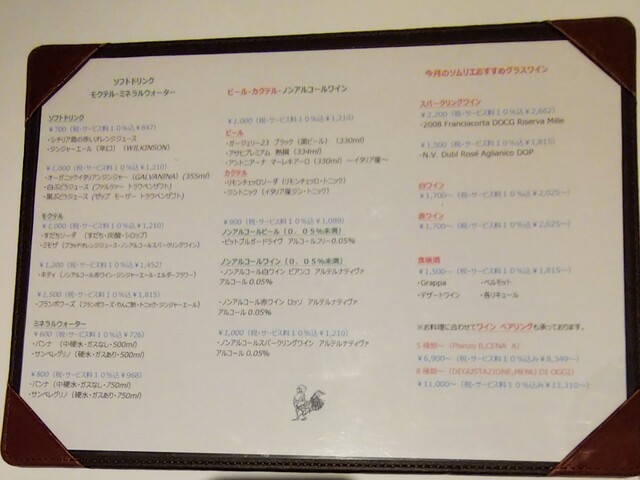 ソフトドリンク
モクテル・ミネラルウォーター
ソフトドリンク
￥700（税・サービス料１０％込￥847）
・シチリア島の赤いオレンジジュース
・ジンジャーエール（辛口）(WILKINSON)
￥1,000（税・サービス料１０％込￥1,210）
・オーガニックイタリアンジンジャー（GALVANINA）(355ml)
・白ぶどうジュース（ファルツァー トラウベンザフト）
・黒ぶどうジュース（ザップ モーザー トラウベンザフト）
モクテル
￥1,000（税・サービス料１０％込￥1,210）
・すだちソーダ（すだち・炭酸・シロップ）
・ミモザ（ブラッドオレンジジュース・ノンアルコールスパークリングワイン）
￥1,200（税・サービス料１０％込￥1,452）
・キティ（ノンアルコール赤ワイン・ジンジャーエール・エルダーフラワー）
￥1,500（税・サービス料１０％込￥1,815）
・フランボワーズ（フランボワーズ・りんご酢・トニック・ジンジャーエール）
ミネラルウォーター
￥600（税・サービス料１０％込￥726）
・パンナ（中硬水・ガスなし・500ml）
・サンペレグリノ（硬水・ガスあり・500ml）
￥800（税・サービス料１０％込￥968）
・パンナ（中硬水・ガスなし・750ml）
・サンペレグリノ（硬水・ガスあり・750ml）
ビール・カクテル・ノンアルコールワイン
￥1,000（税・サービス料１０％込￥1,210）
ビール
・ガージェリー23 ブラック（黒ビール）（330ml）
・アサヒプレミアム 熟撰（334ml）
・アントニアーナ マレーキアーロ（330ml）～イタリア産～
カクテル
・リモンチェッロソーダ（リモンチェッロ・トニック）
・ジントニック（イタリア産ジン・トニック）
￥900（税・サービス料１０％込￥1,089）
ノンアルコールビール（０．０５％未満）
・ビットブルガードライヴ アルコールフリー0.05%
ノンアルコールワイン（０．０５％未満）
・ノンアルコール白ワイン ビアンコ アルテルナティヴァ
アルコール 0.05%
・ノンアルコール赤ワイン ロッソ アルテルナティヴァ
アルコール 0.05%
￥1,000（税・サービス料１０％込￥1,210）
・ノンアルコールスパークリングワイン アルテルナティヴァ
アルコール 0.05%
今月のソムリエおすすめグラスワイン
スパークリングワイン
￥2,200（税・サービス料１０％込￥2,662）
・2008 Franciacorta DOCG Riserva Mille
￥1,500（税・サービス料１０％込￥1,815）
・N.V. Dubl Rosé Aglianico DOP
白ワイン
￥1,700～（税・サービス料１０％込￥2,025～）
赤ワイン
￥1,700～（税・サービス料１０％込￥2,025～）
食後酒
￥1,500～（税・サービス料１０％込￥1,815～）
・Grappa ・ベルモット
・デザートワイン ・各リキュール
※お料理に合わせてワイン ペアリングも承っております。
５種類～（Pranzo B,CENA A）
￥6,900～（税・サービス料１０％込み￥8,349～）
８種類～（DEGUSTAZIONE,MENU DI OGGI）
￥11,000～（税・サービス料１０％込み￥13,310～）